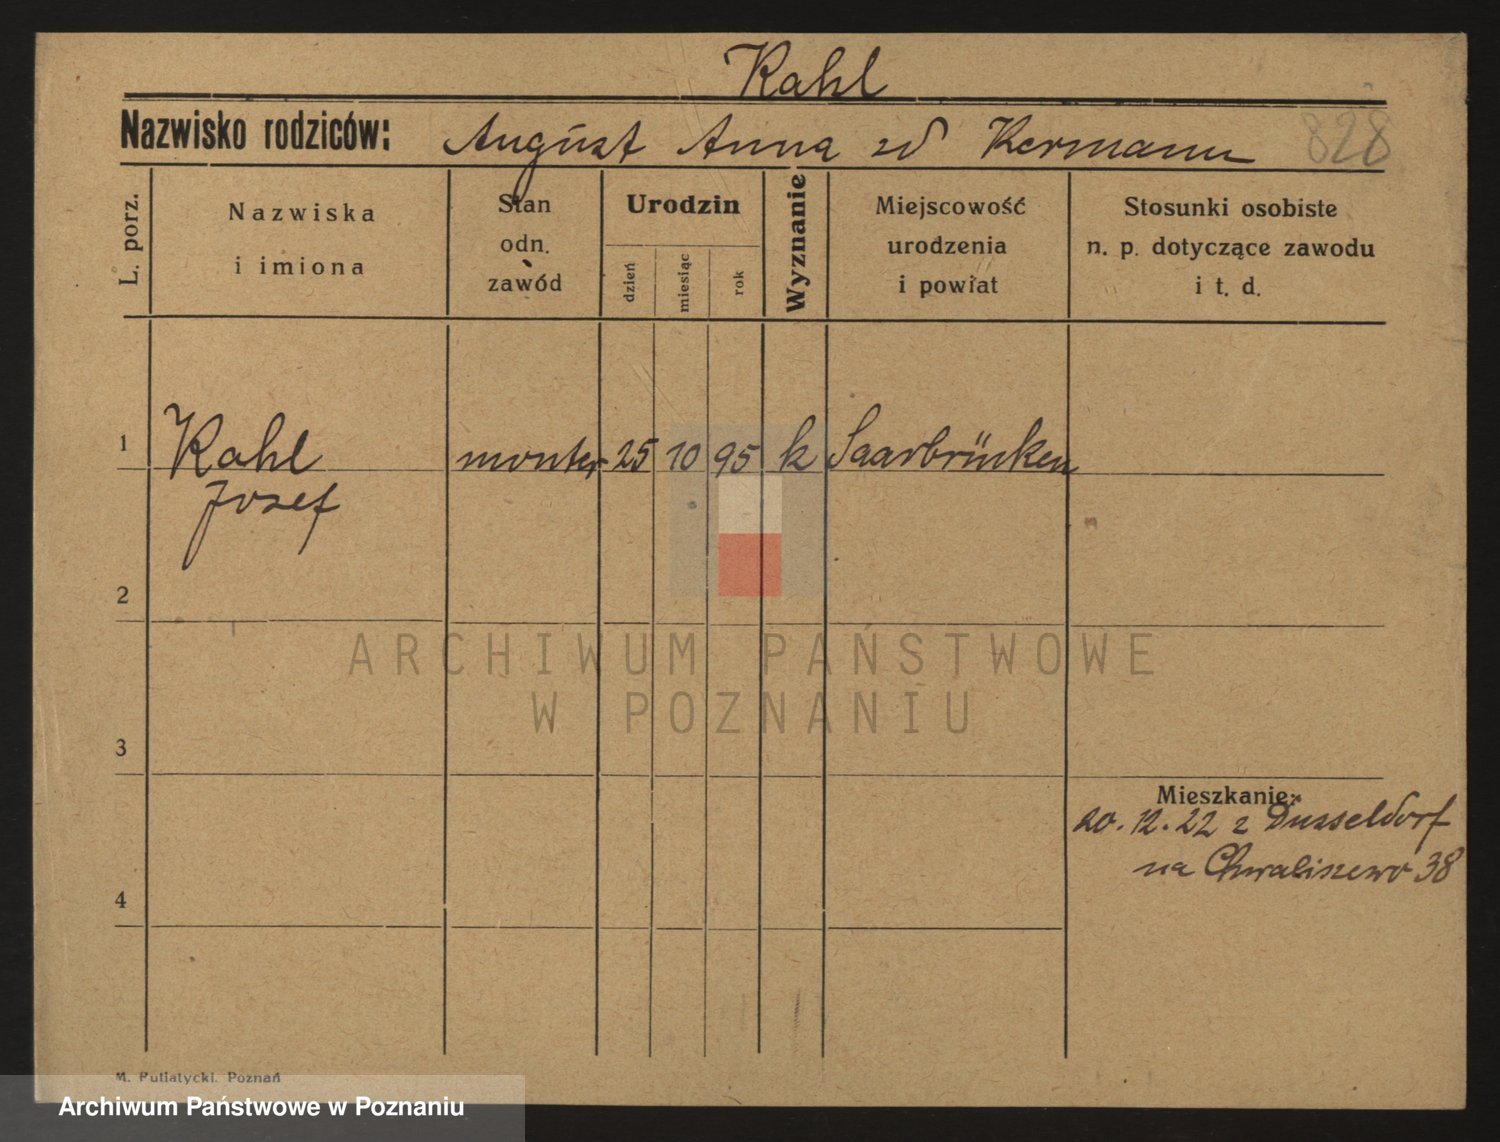 Kahl
Nazwisko rodziców: August Anna zd Kermann 828
L. porz.
Nazwiska
i imiona
Stan
odn.
zawód
Urodzin
dzień
miesiąc
rok
Wyznanie
Miejscowość
urodzenia
i powiat
Stosunki osobiste
n. p. dotyczące zawodu
i t. d.
1 Kahl monter 25 10 95 k Saarbrüken
Josef
2
ARCHIWUM PAŃSTWOWE
W POZNANIU
3
Mieszkanie:
20. 12. 22 z Dusseldorf
na Chwaliszewo 38
4
M. Putiatycki. Poznań
Archiwum Państwowe w Poznaniu